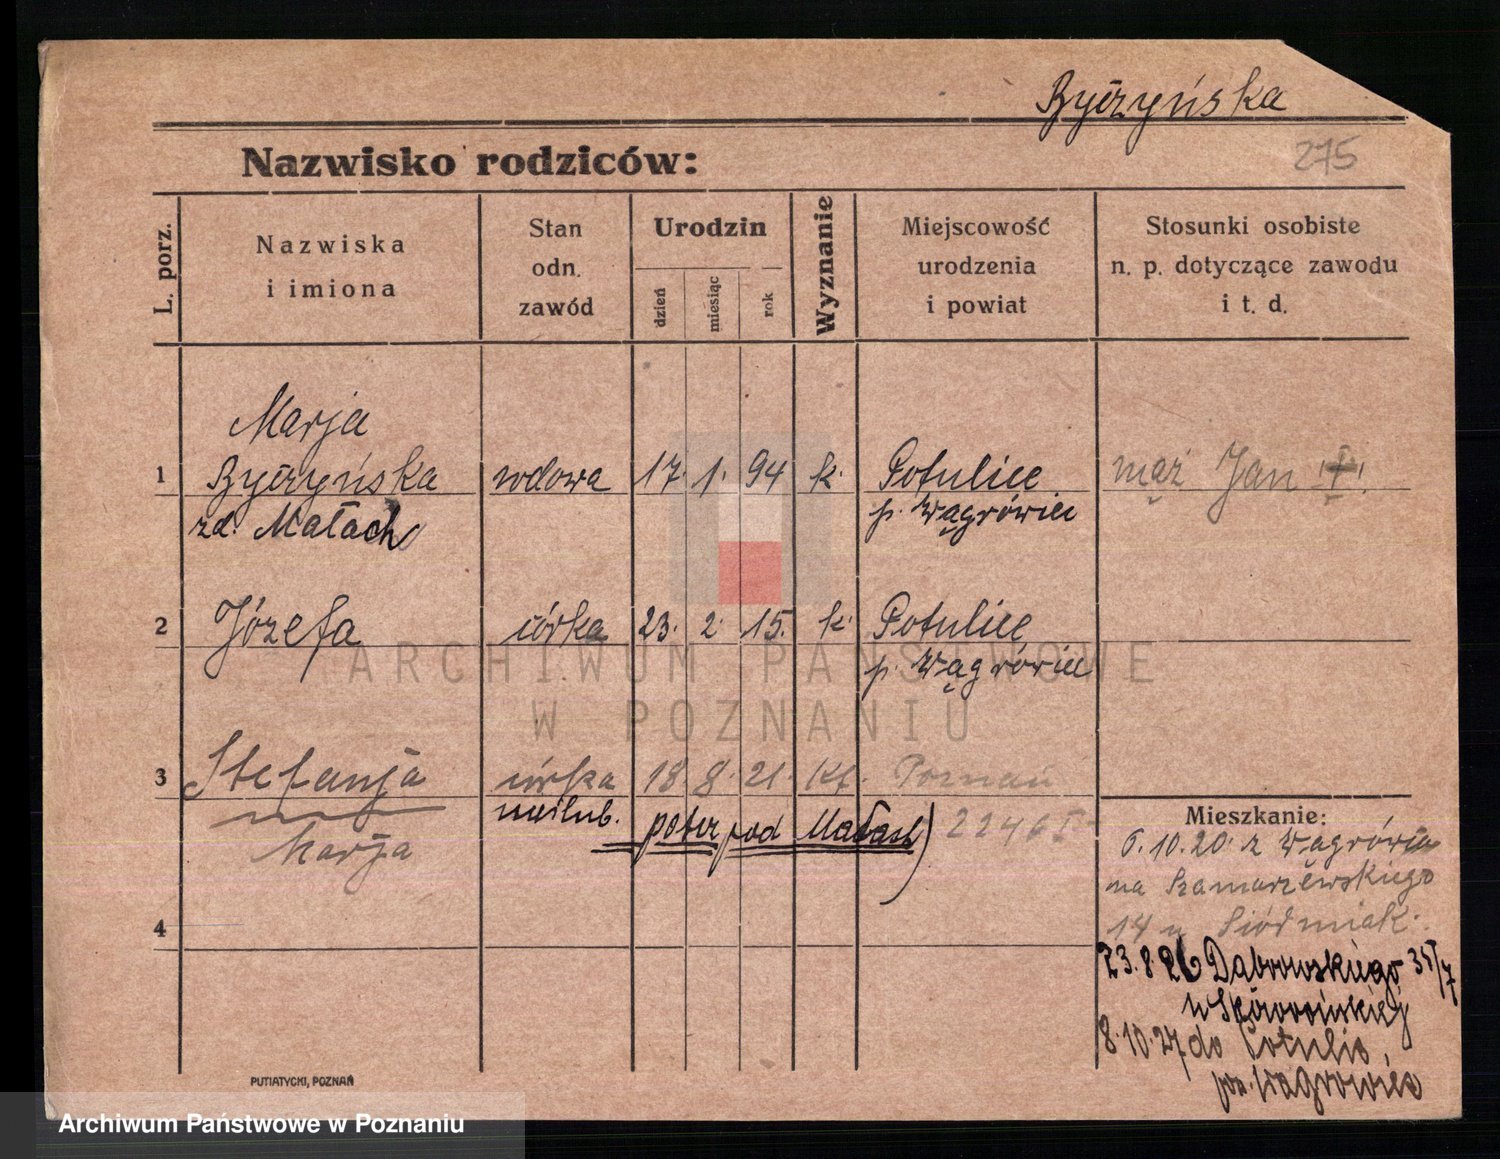 Byczyńska
275
Nazwisko rodziców:
L. porz.
Nazwiska
i imiona
Stan
odn.
zawód
Urodzin
dzień
miesiąc
rok
Wyznanie
Miejscowość
urodzenia
i powiat
Stosunki osobiste
n. p. dotyczące zawodu
i t. d.
Marja
1 Byczyńska wdowa 17. 1. 94 k. Potulice mąż Jan
zd. Małach p. Wągrówiec
2 Józefa córka 23. 2. 15. k. Potulice
p. Wągrówiec
3 Stefanja córka 18. 8. 21. Kt. Poznań
nieślub. pod Małach) 2246
Marja
4
Mieszkanie:
6.10.20. z Wągrówca
na Szamarzewskiego
14 u Siódmiak.
23.8.26 Dąbrowskiego 35/7
u Skóworońskiej
8.10.27 do Potulic,
pow. Wągrowiec
PUTIATYCKI, POZNAŃ
ARCHIWUM PAŃSTWOWE
W POZNANIU
Archiwum Państwowe w Poznaniu